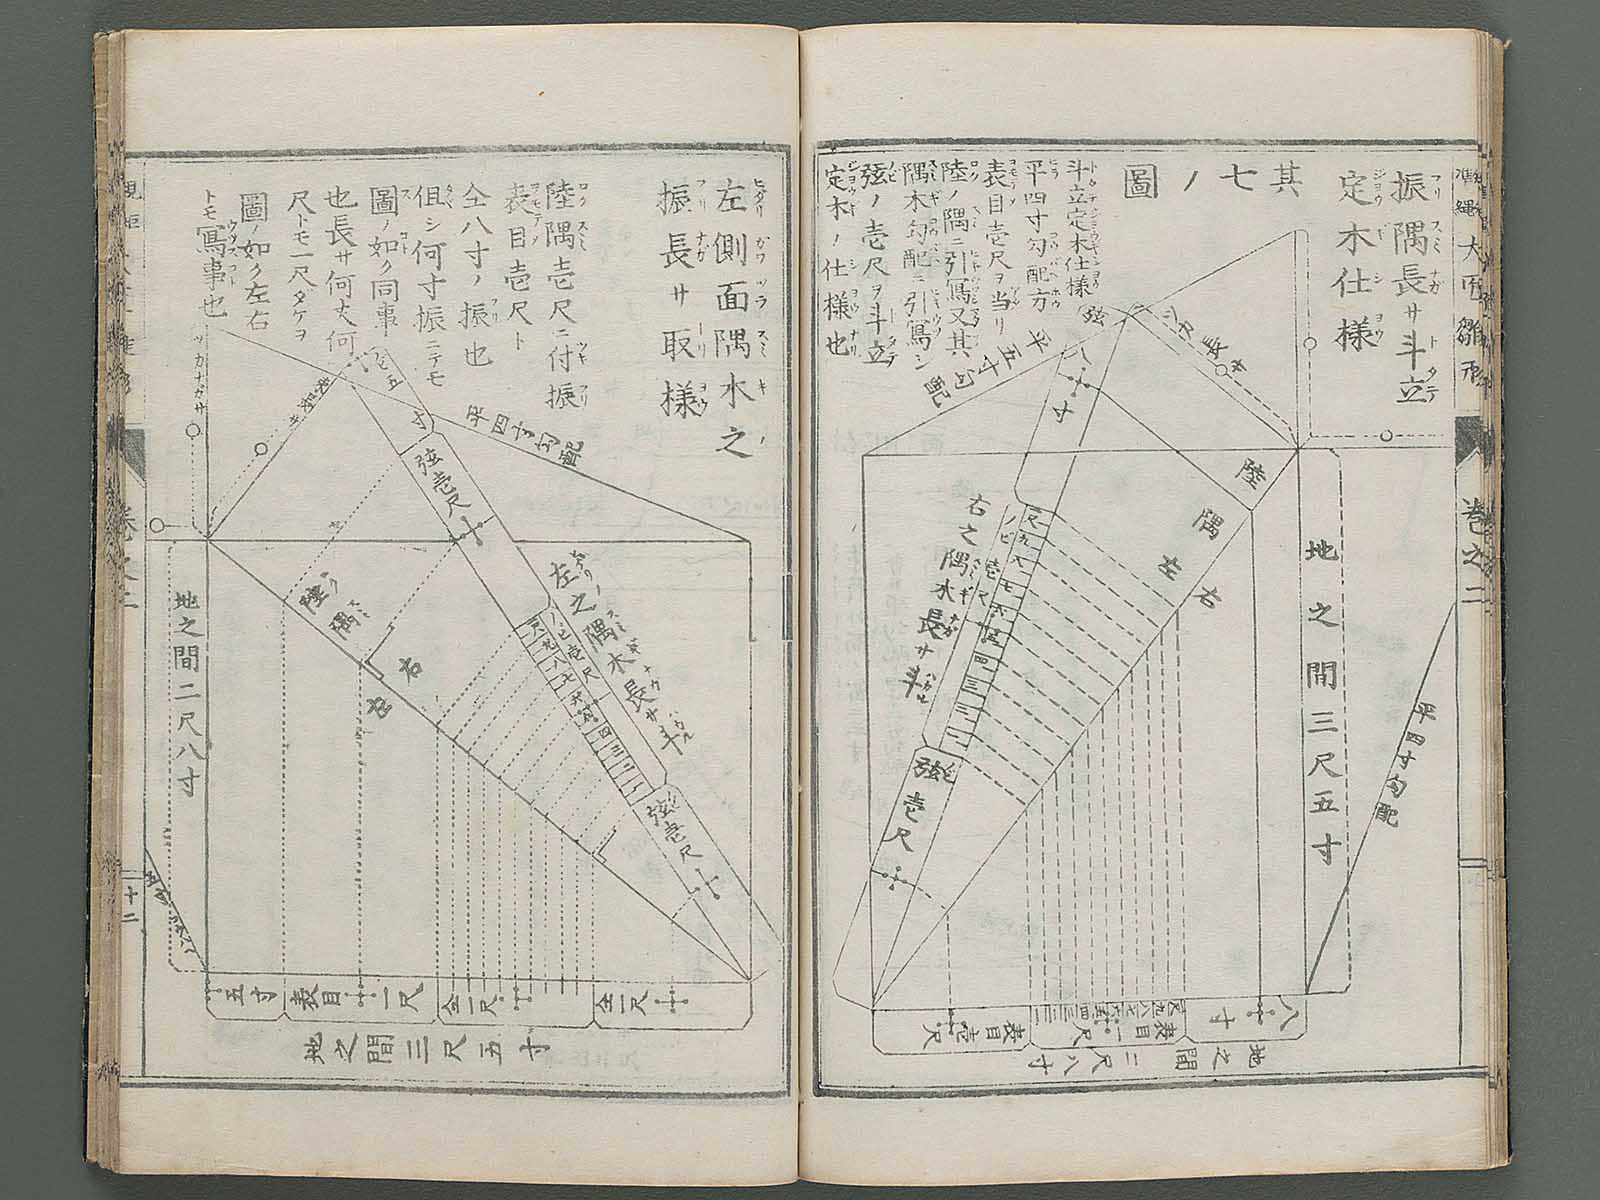 振隅長サ斗立
定木仕様
其七ノ圖
斗立定木仕様ハ
平四寸勾配方
表目壱尺ヲ当リ
陸ノ隅ニ引寫又其
隅木勾配ニ引寫シ
弦ノ壱尺ヲ斗立
定木ノ仕様也
平五寸勾配
陸隅
左
右
右之隅木長サ斗
弦壱尺
地之間三尺五寸
平四寸勾配
八寸
表目一尺
表目壱尺
地之間二尺八寸
巻之二
左側面隅木之
振長サ取様
陸隅壱尺ニ付振
表目壱尺ト
仝八寸ノ振也
伹シ何寸振ニテモ
圖ノ如ク同事
也長サ何丈何
尺トモ一尺ダケヲ
圖ノ如ク左右
トモ寫事也
ツカナガサ
平四寸勾配
弦壱尺
左之隅木長サ斗
陸隅
右
左
弦壱尺
地之間二尺八寸
五寸
表目一尺
仝一尺
仝一尺
地之間三尺五寸
巻之二
十二